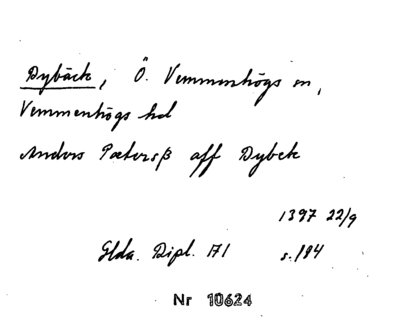 Dybäck, Ö. Vemmenhögs sn,
Vemmenhögs hd
Anders Pætersß aff Dybek
1397 22/9
Glda. Dipl. 171 s. 194
Nr 10624